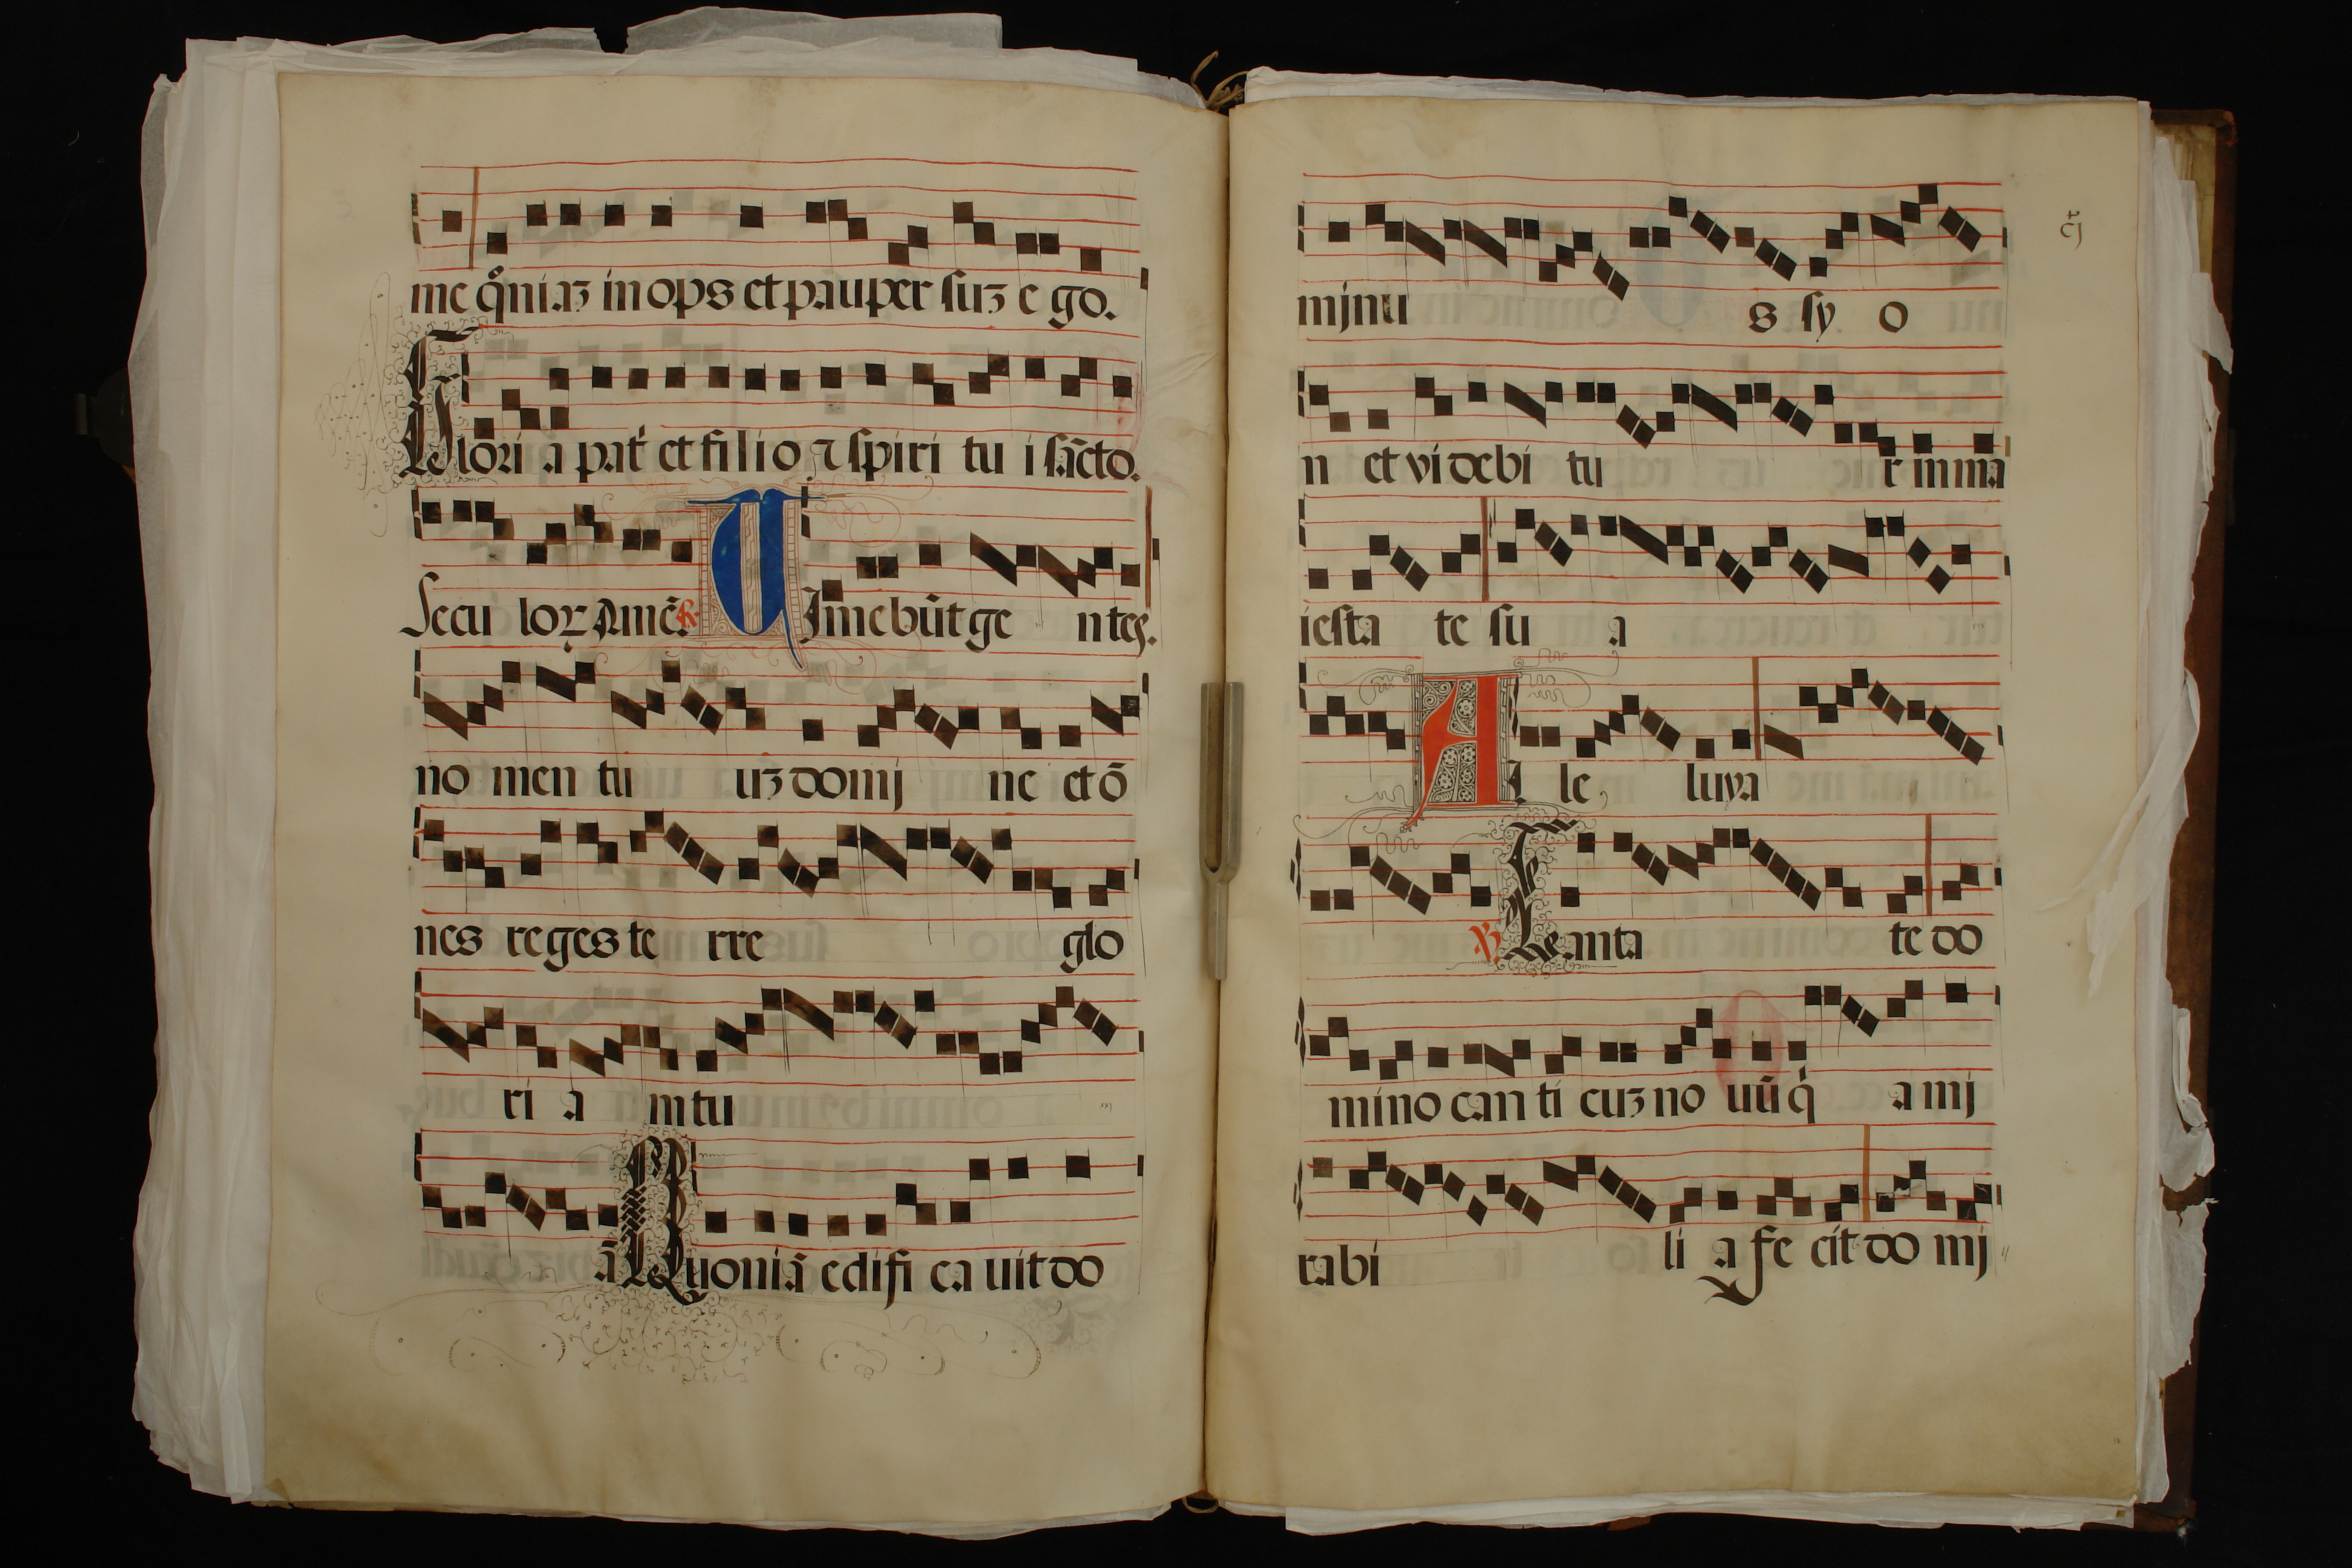 me qͦniaꝫ in ops et pauper suꝫ e go.
Glori a pat᷑ et fi li o ⁊ spiri tu i sācto.
Secu loꝝ Amē. ℟ Timebūt ge ntes.
no men tu uꝫ domj ne et ō
nes reges te rre glo
ri a m tu
ā Quoniā edifi ca uit do
cj
mjnu s sy o
n et vi debi tu r in ma
iesta te su a
Al le luya
℣ Canta te do
mino can ti cuꝫ no uū q᷑ a mj
rabi li a fe cit do mj